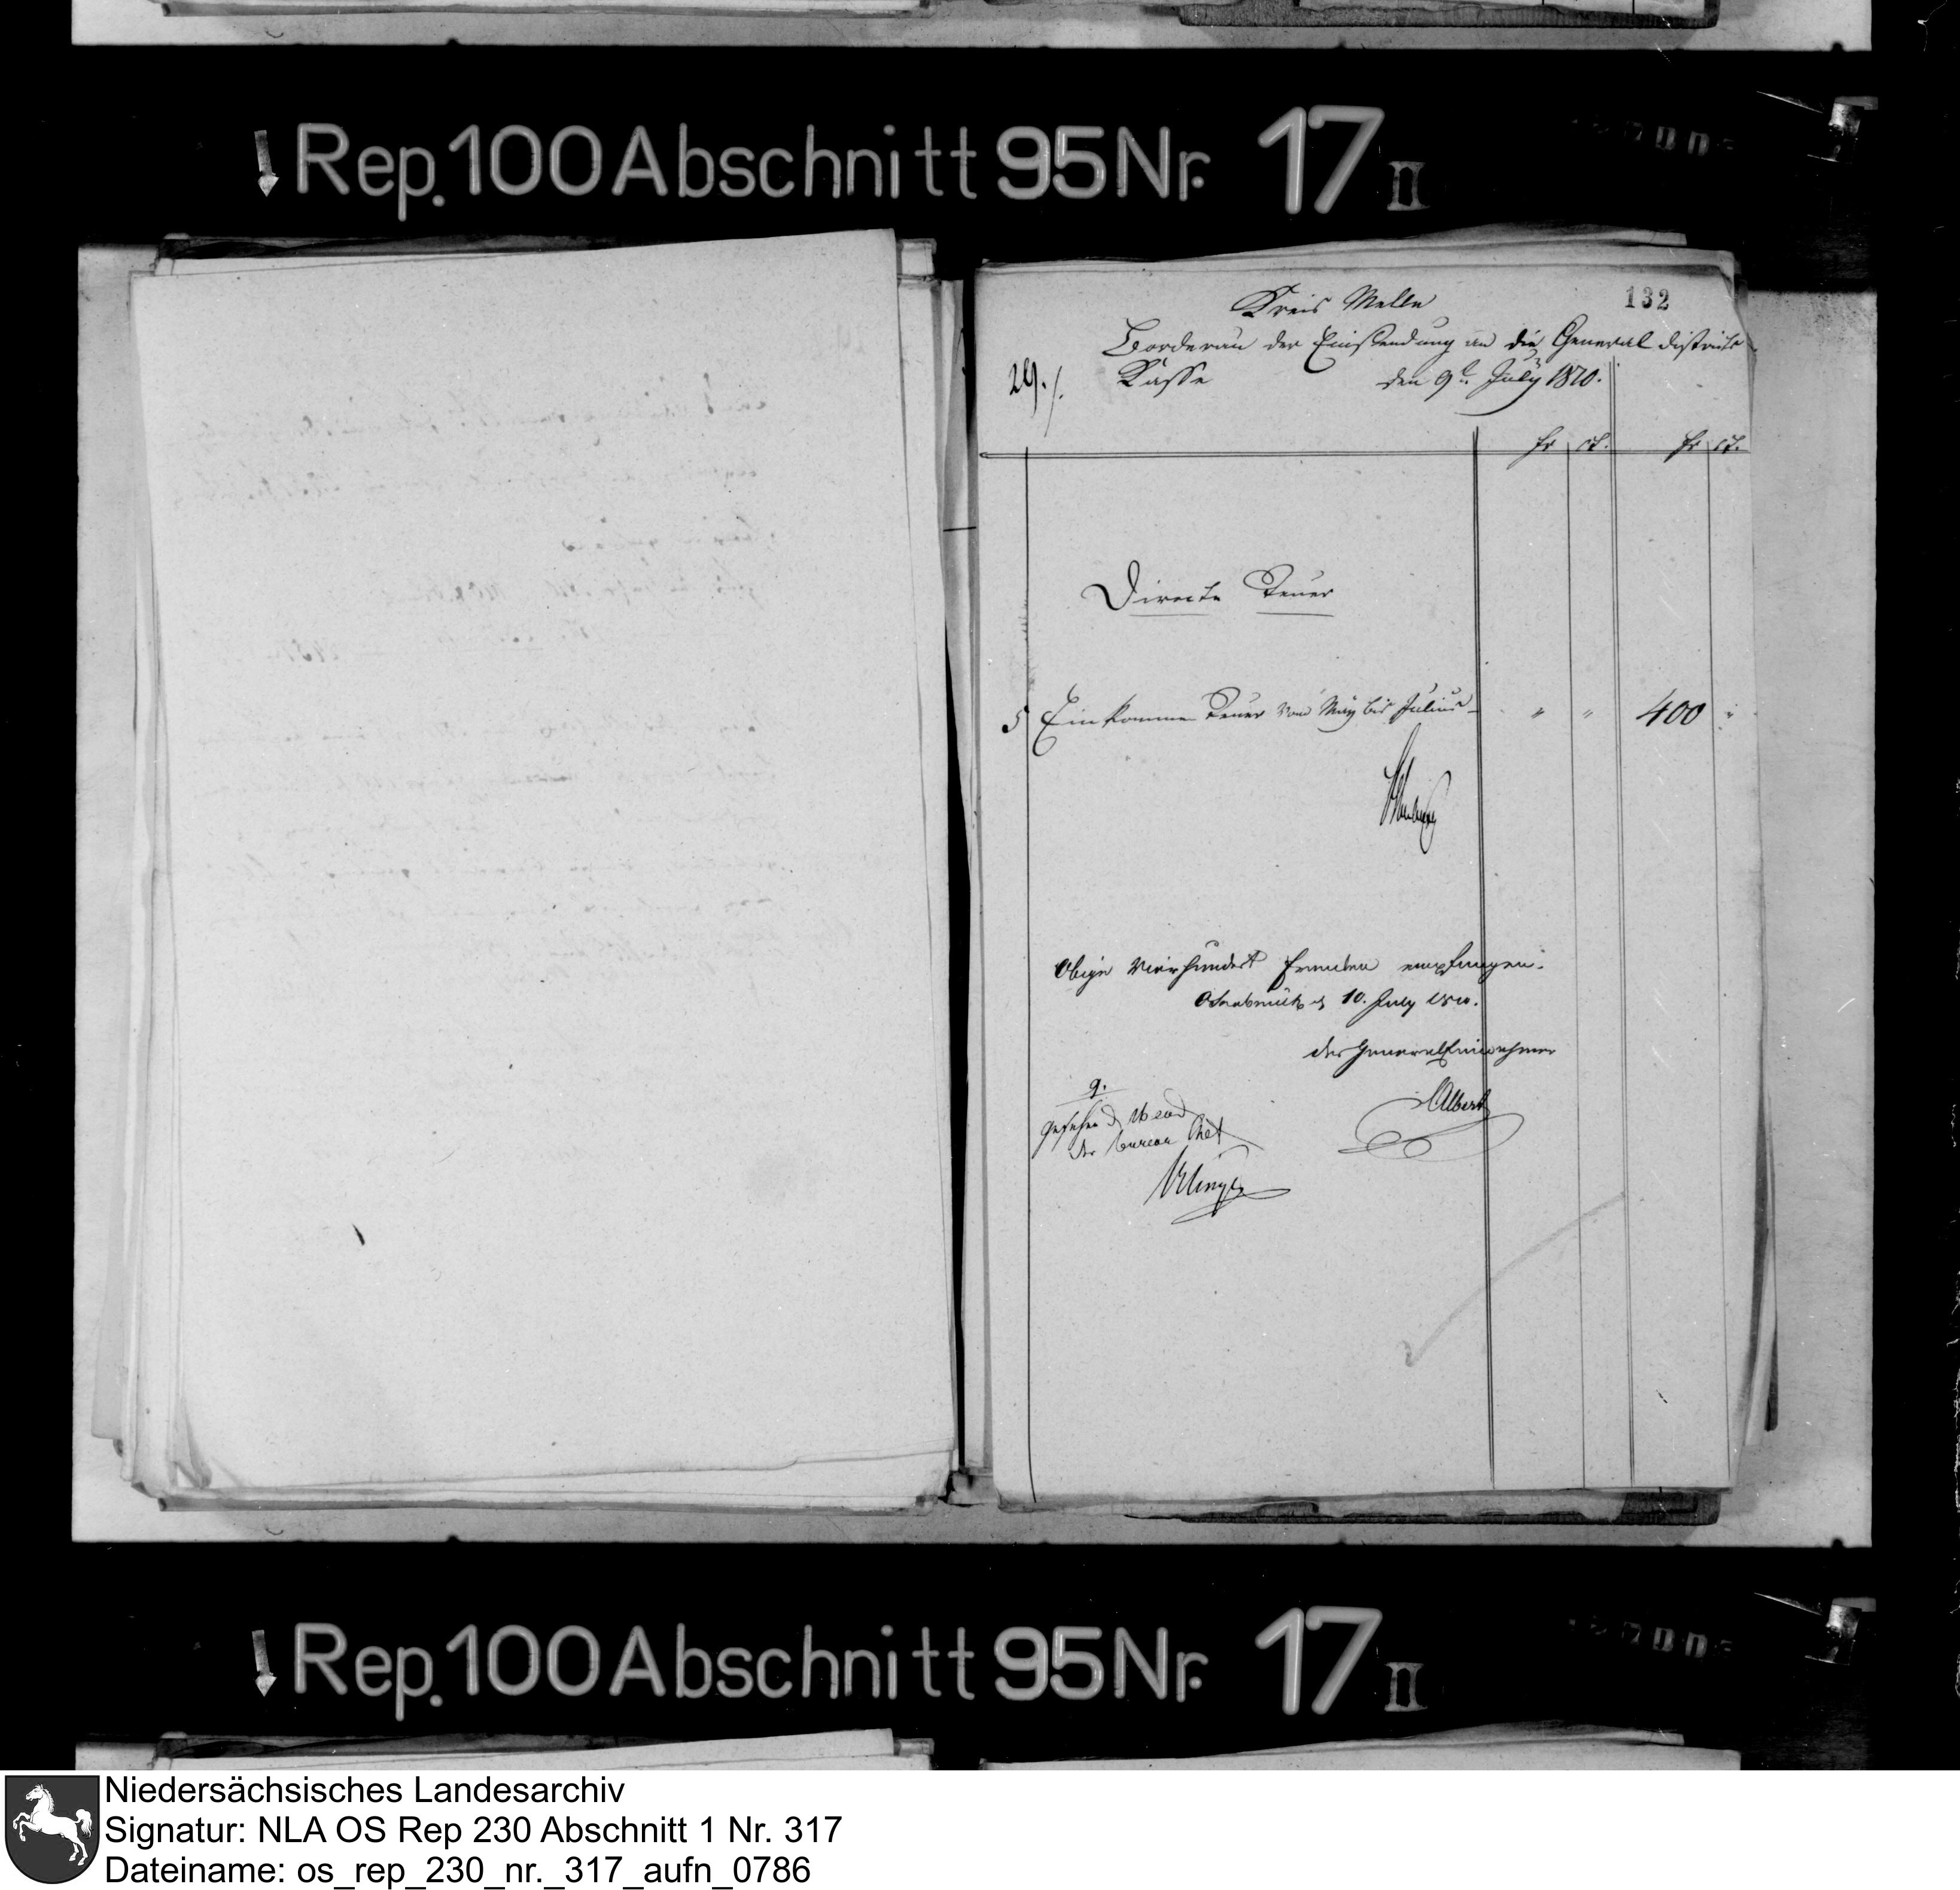 Rep. 100 Abschnitt 95 Nr. 17 II
132
Kreis Melle
Borderau der Einsendung an die General districts
29./.
Casse den 9t. July 1810.
fr ct. fr ct.
Directe Steuer
5 Einkommen Steuer vom May bis Julius - " " 400 "
Obige Vierhundert Franken empfangen.
Osnabrück d 10. July 1810.
der General Einnehmer
Albert
9.
gesehen d
der bureau Chef
Rep. 100 Abschnitt 95 Nr. 17 II
Niedersächsisches Landesarchiv
Signatur: NLA OS Rep 230 Abschnitt 1 Nr. 317
Dateiname: os_rep_230_nr._317_aufn_0786